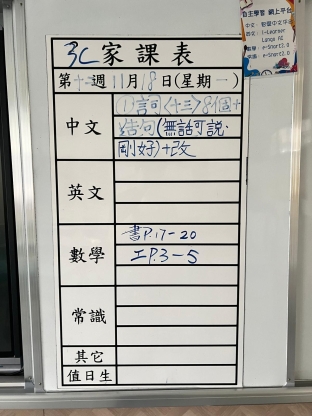 3C家課表
第十二週11月18日(星期一)
中文
①詞(十三)8個+
造句(無話可說、
剛好)+改
英文
數學
書P.17-20
工P.3-5
常識
其它
值日生
自主學習 網上平台
i-Learner
e-Smart2.0
e-Smart2.0